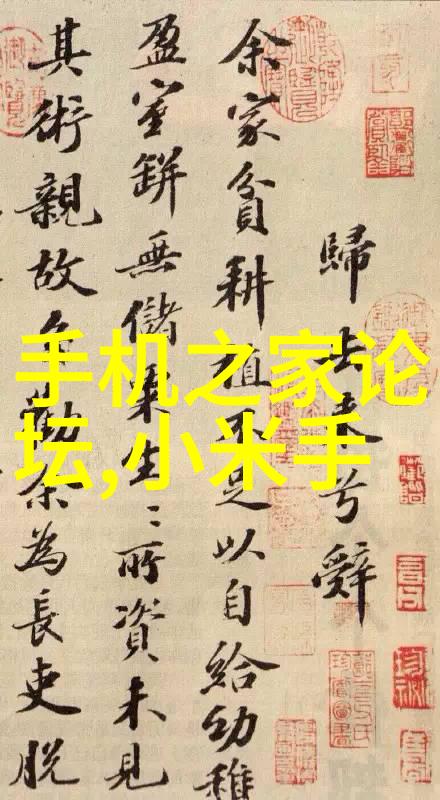 歸去来兮辭
余家貧耕植不足以自給幼稚
盈室缾無儲粟生〻所資未見
其術親故多勸余為長吏脫
手机之家论
坛,小米手